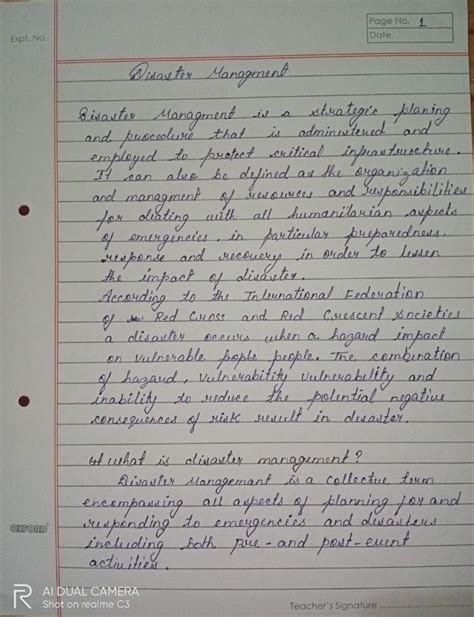 Expt. No.
Page No. 1
Date.
Disaster Managment
Disaster Managment is a strategic planing
and procedure that is administered and
employed to protect critical infrastructure.
It can also be defined as the organization
and managment of resources and responsibilities
for dealing with all humanitarian aspects
of emergencies, in particular preparedness,
response and recovery in order to lessen
the impact of disaster.
According to the International Federation
of Red Cross and Red Crescent Societies
a disaster occurs when a hazard impact
on vulnerable pople people. The combination
of hazard, vulnerabitity vulnerability and
inability to reduce the potential negative
consequences of risk result in disaster.
what is disaster management?
Disaster Management is a collective term
encompassing all aspects of planning for and
responding to emergencies and disasters
including both pre-and post-event
activities.
OXFORD
AI DUAL CAMERA
Shot on realme C3
Teacher's Signature